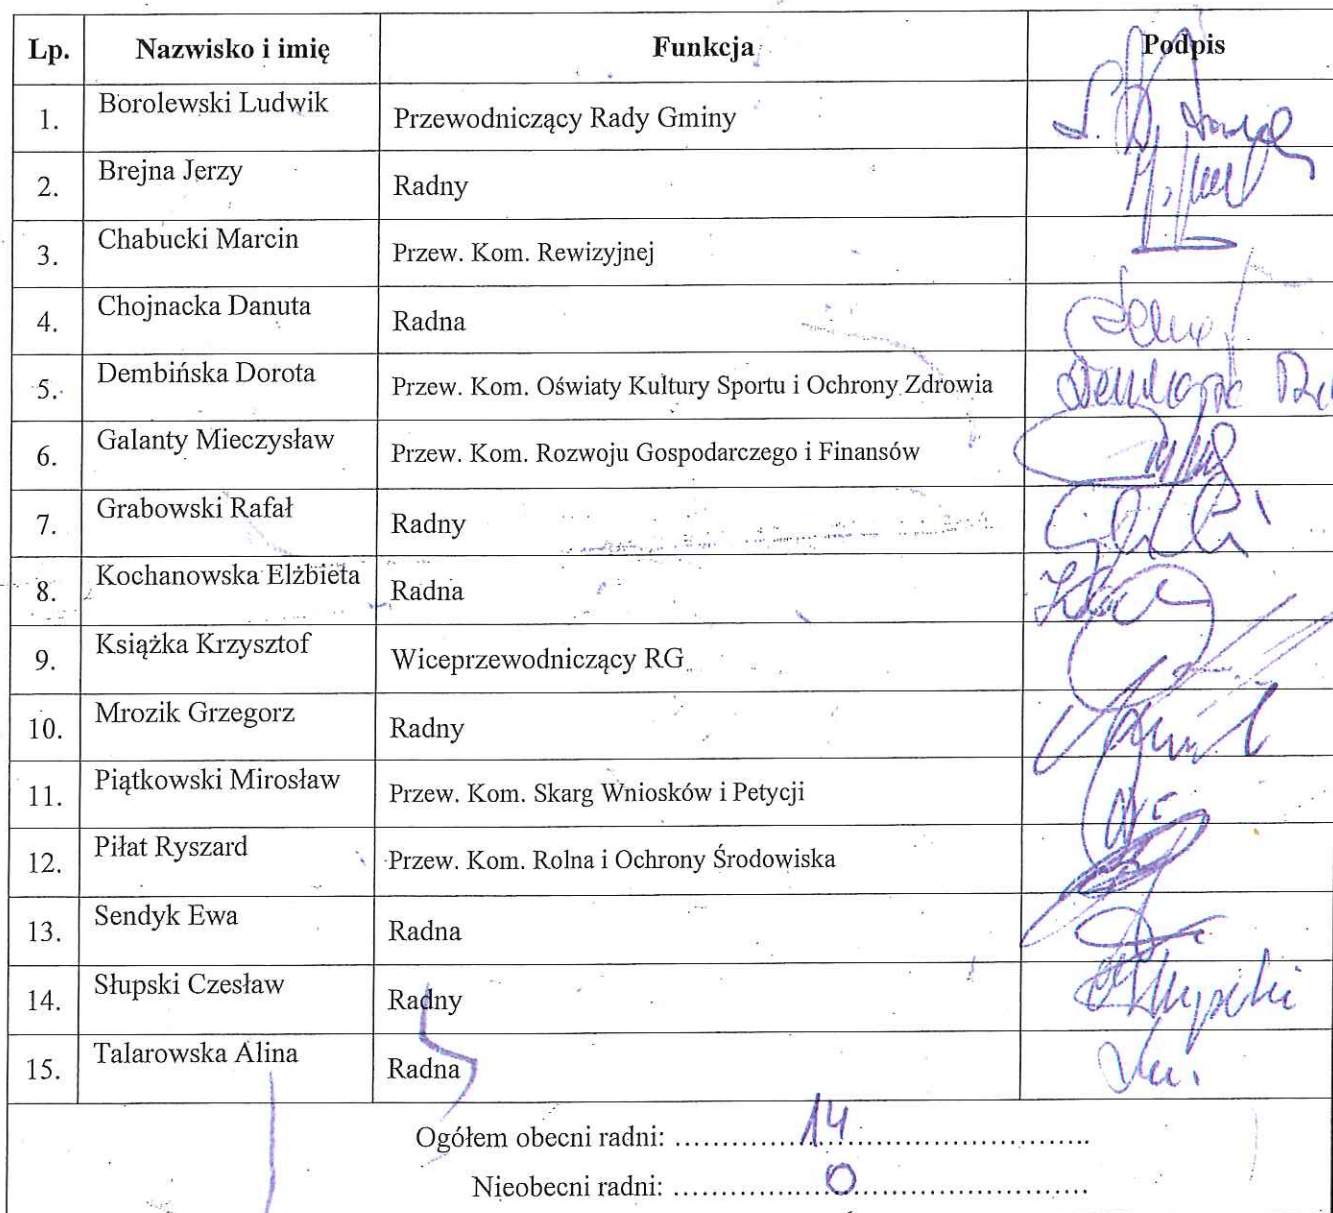 Lp. Nazwisko i imię Funkcja Podpis
1. Borolewski Ludwik Przewodniczący Rady Gminy
2. Brejna Jerzy Radny
3. Chabucki Marcin Przew. Kom. Rewizyjnej
4. Chojnacka Danuta Radna
5. Dembińska Dorota Przew. Kom. Oświaty Kultury Sportu i Ochrony Zdrowia
6. Galanty Mieczysław Przew. Kom. Rozwoju Gospodarczego i Finansów
7. Grabowski Rafał Radny
8. Kochanowska Elżbieta Radna
9. Książka Krzysztof Wiceprzewodniczący RG
10. Mrozik Grzegorz Radny
11. Piątkowski Mirosław Przew. Kom. Skarg Wniosków i Petycji
12. Piłat Ryszard Przew. Kom. Rolna i Ochrony Środowiska
13. Sendyk Ewa Radna
14. Słupski Czesław Radny
15. Talarowska Alina Radna
Ogółem obecni radni: 14
Nieobecni radni: 0